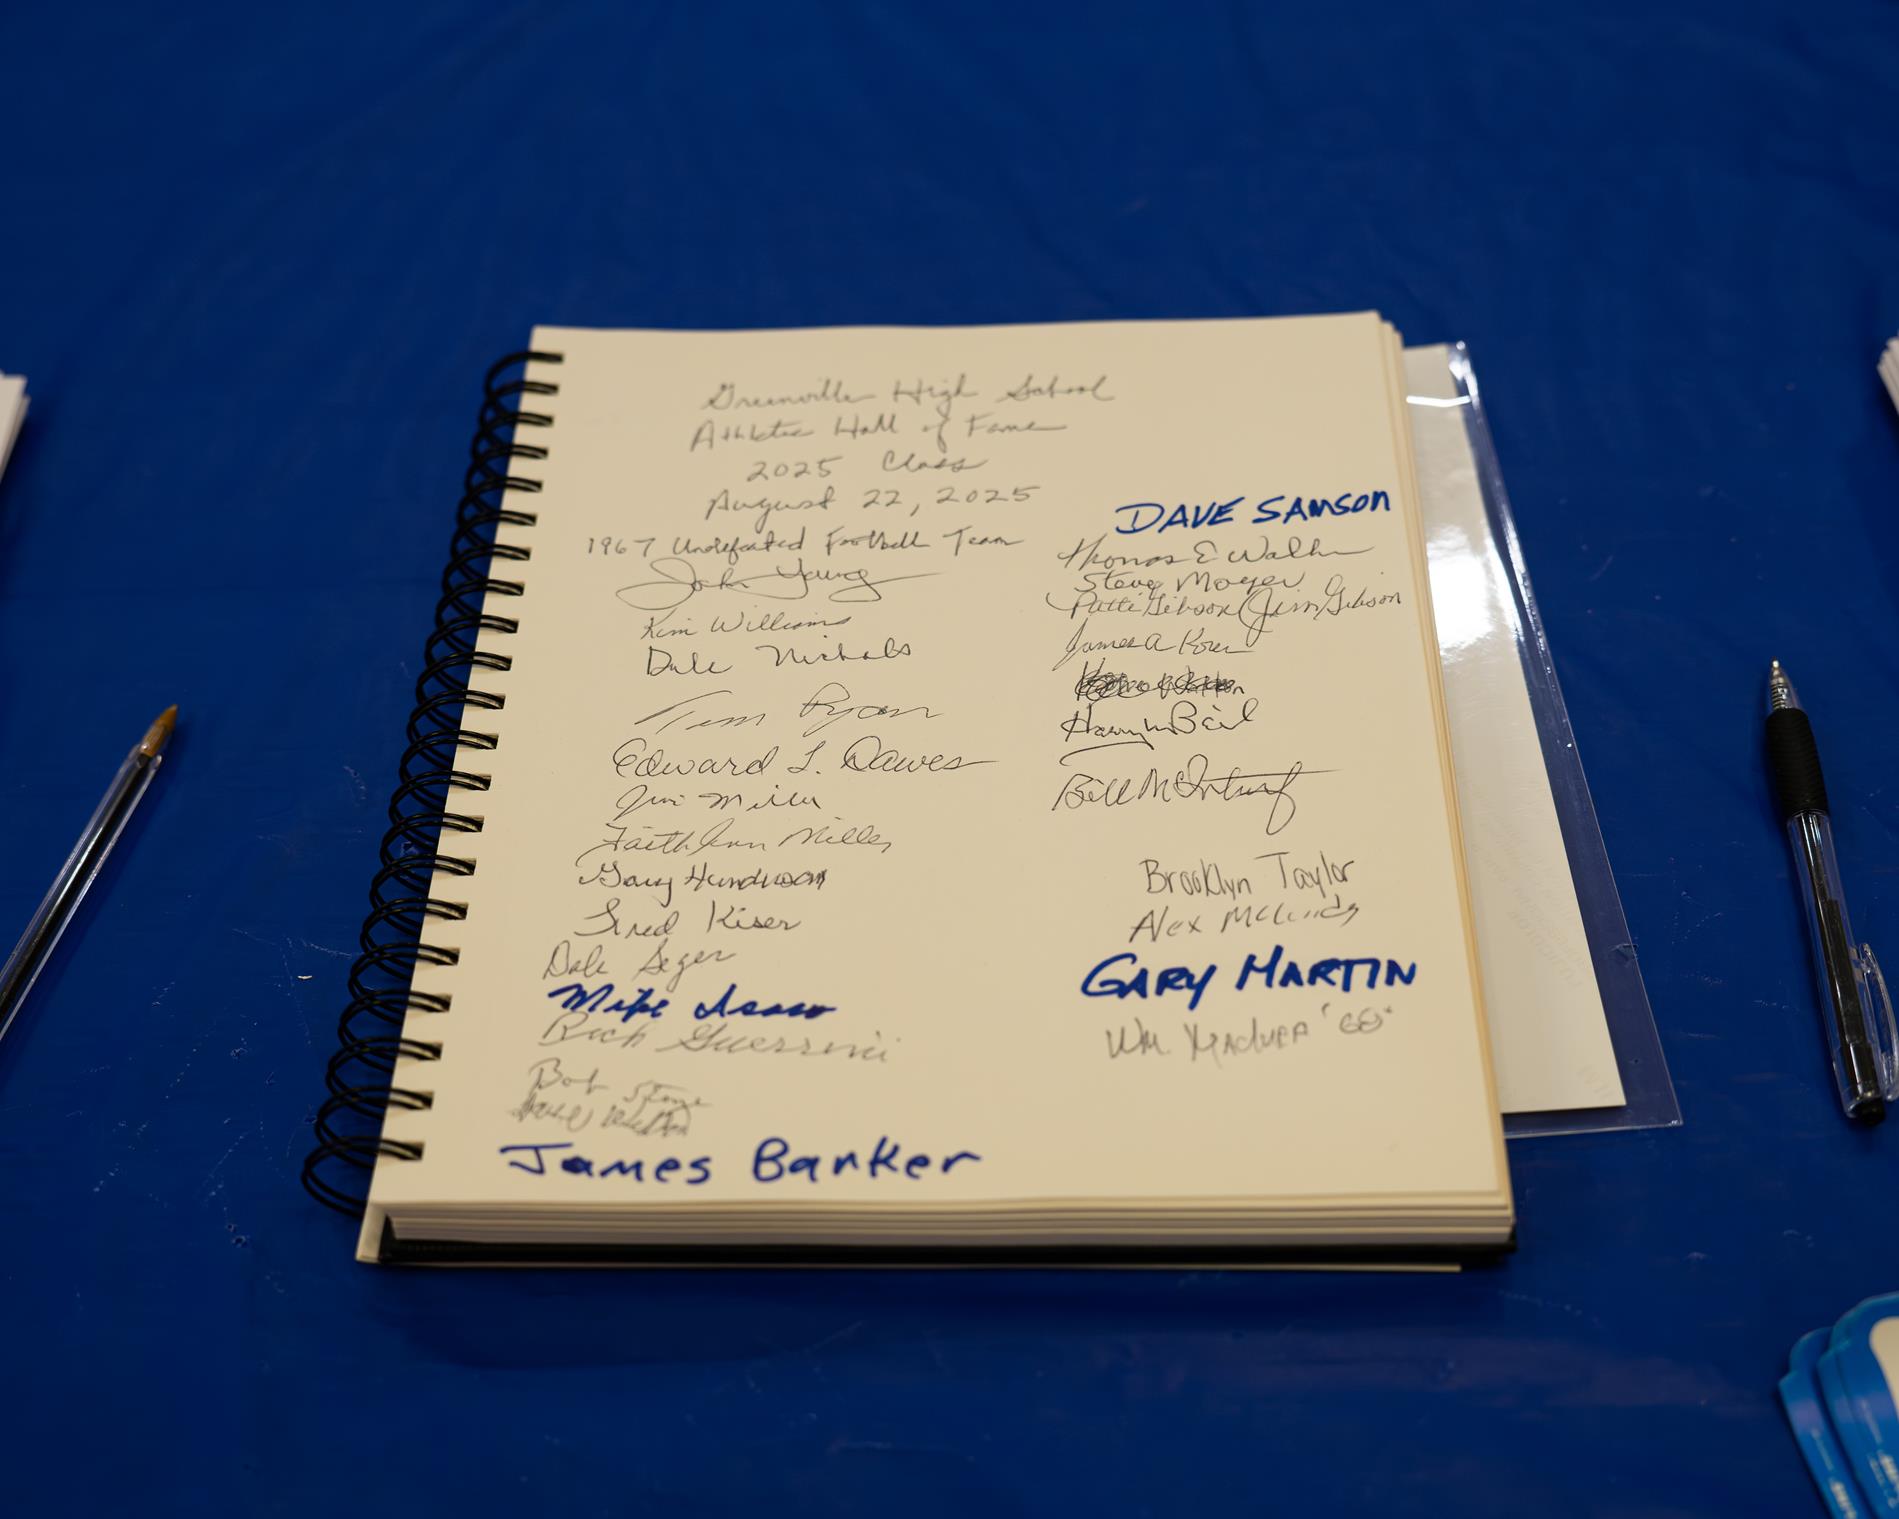 Greenville High School
Athletic Hall of Fame
2025 Class
August 22, 2025
1967 Undefeated Football Team
John Young
Kim Williams
Dale Nichols
Tim Ryan
Edward L. Dawes
Jim Miller
Faith Ann Miller
Gary Henderson
Fred Kiser
Dale Seger
Mike Isaac
Rich Guerrini
Bob Stone
James Banker
DAVE SAMSON
Thomas E
Steve Moyer
Patti Gibson (Jim) Gibson
James A
Harry Beil
Bill McInturf
Brooklyn Taylor
Alex
GARY MARTIN
Wm.